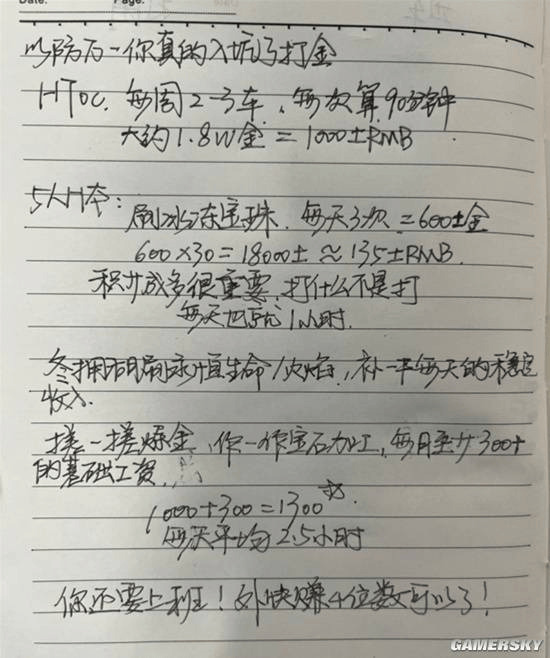 Date:
Page:
以防万一你真的入坑了打金
HTOC. 每周2-3车, 每次算90分钟
大约1.8W金 = 1000±RMB
5人H本:
刷冰冻宝珠. 每天3次 = 600±金
600×30=18000± ≈ 135±RMB.
积少成多很重要, 打什么不是打
每天也就1小时.
冬拥湖刷永恒生命/火焰, 补一半每天的稳定
收入.
搓一搓炼金, 作一作宝石加工, 每月至少300+
的基础工资.
1000+300=1300
每天平均2.5小时
你还要上班! 外快赚4位数可以了!
GAMERSKY